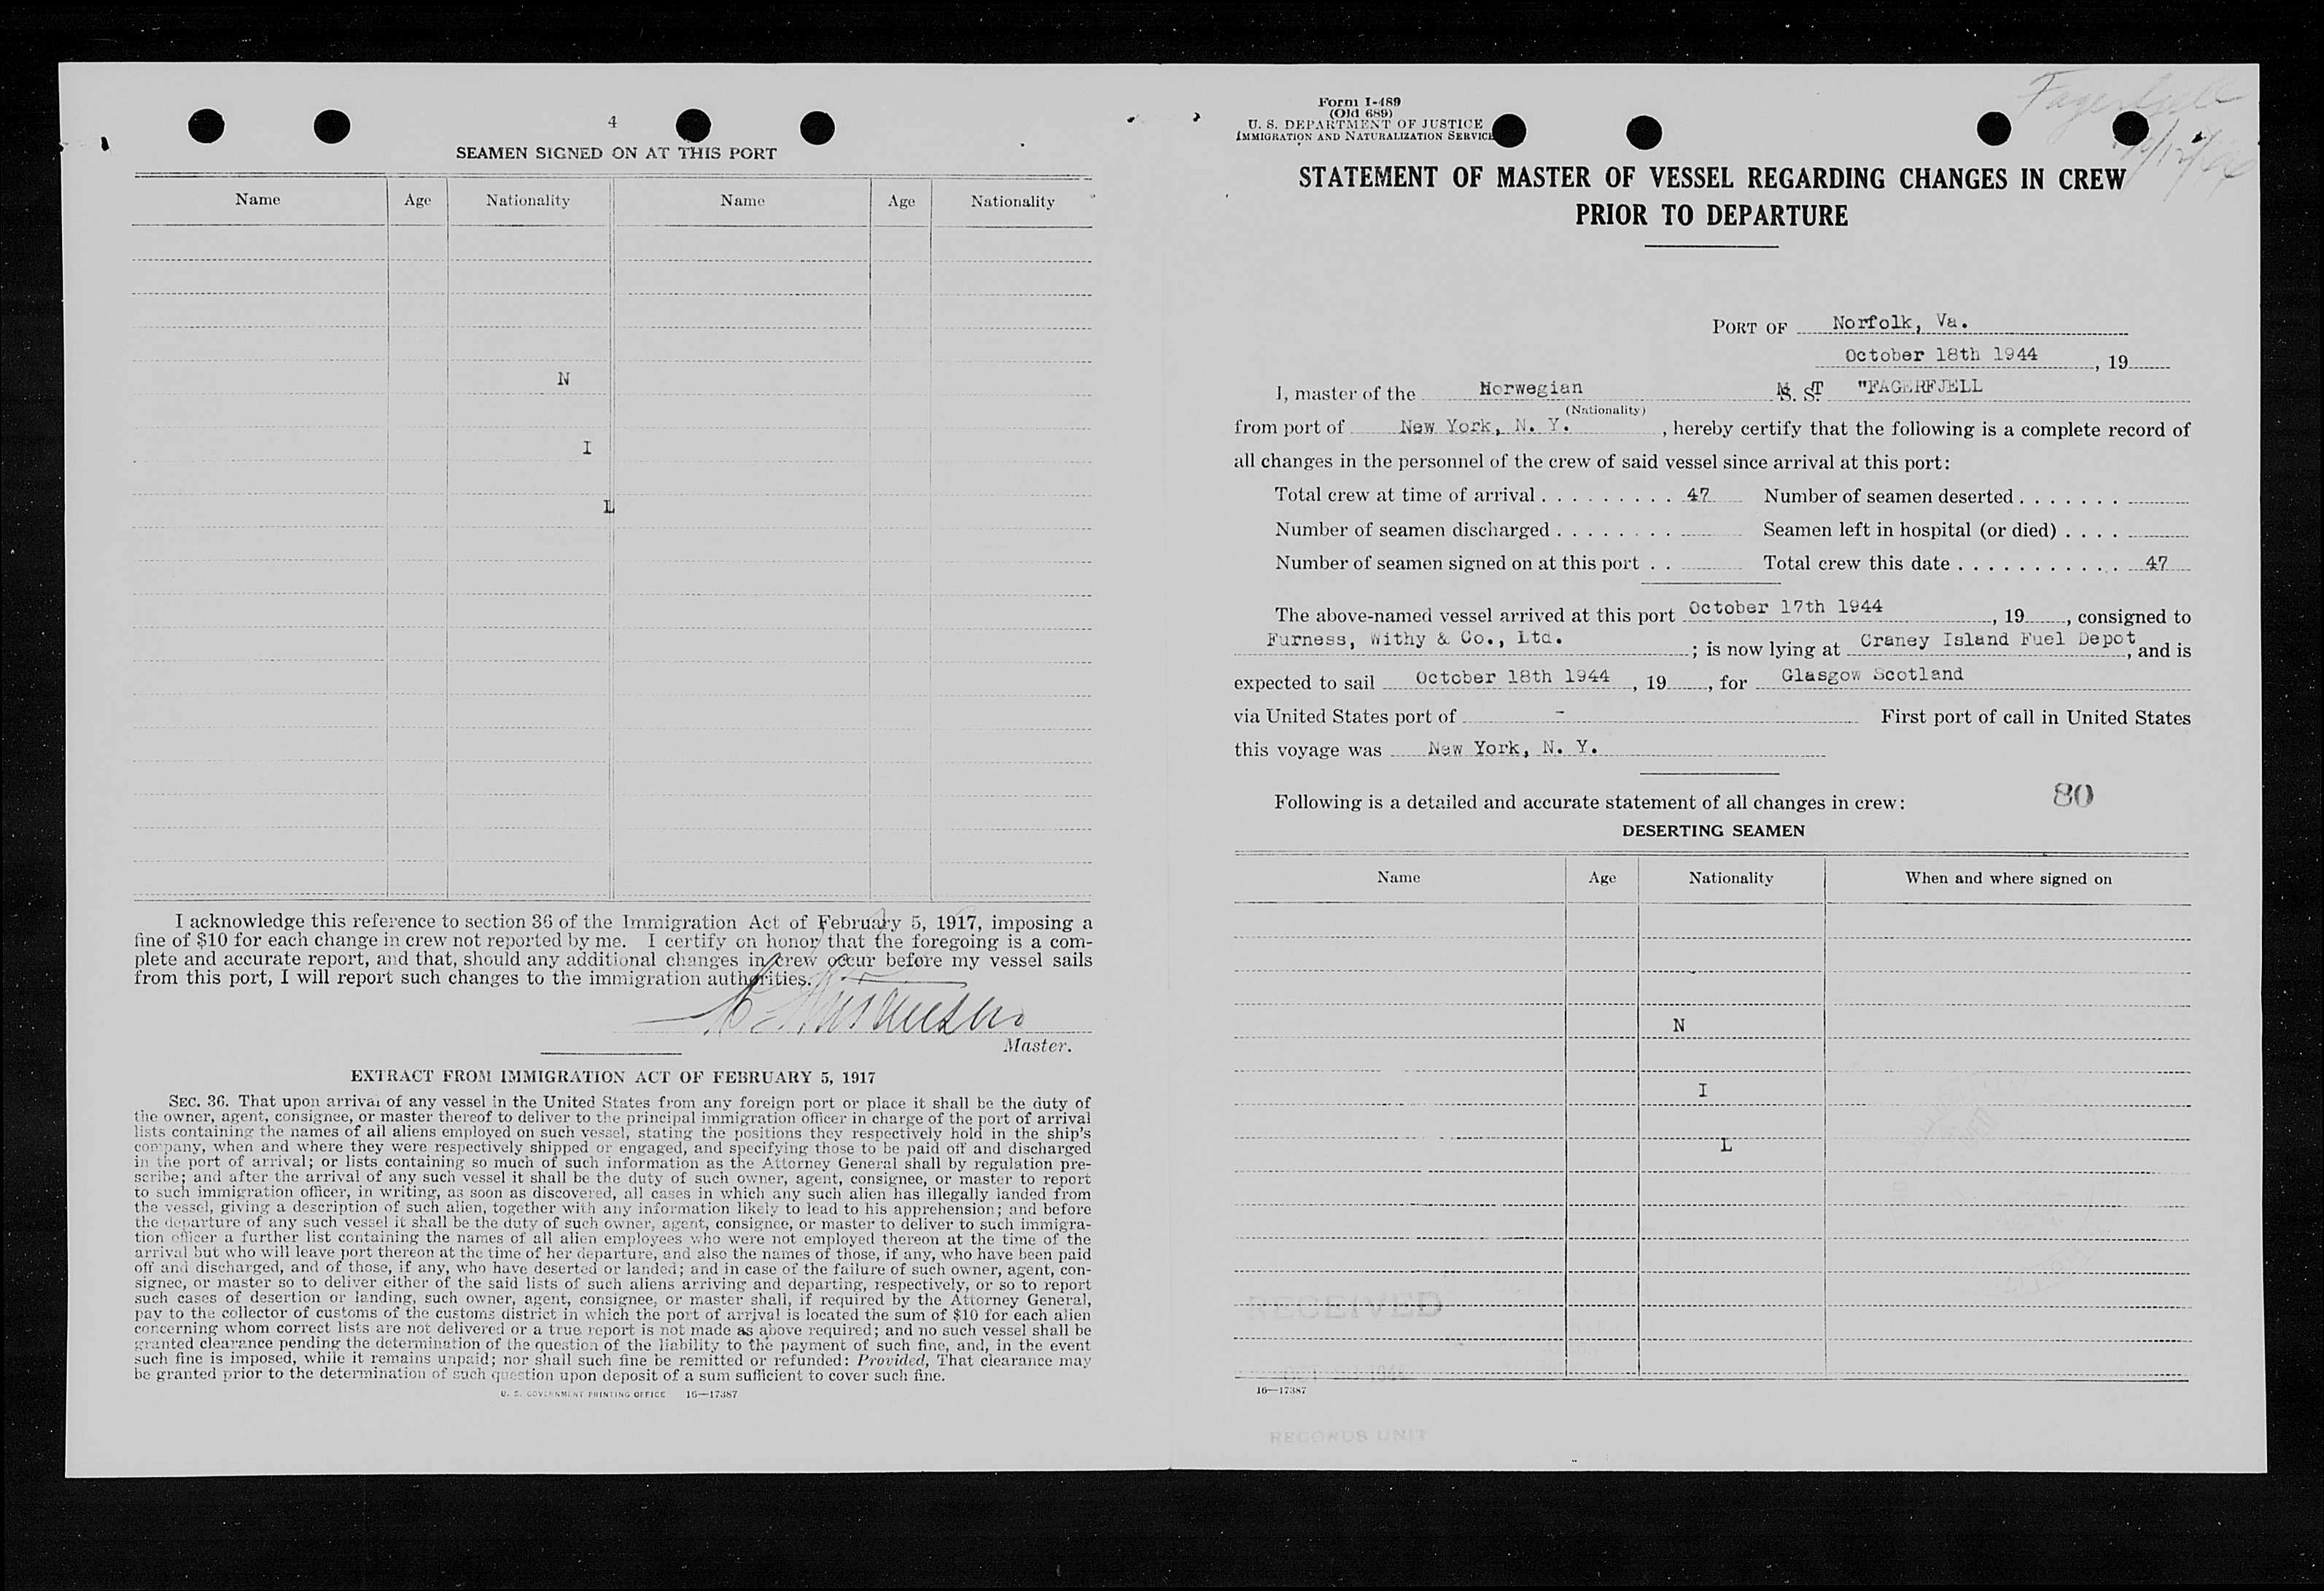 4
SEAMEN SIGNED ON AT THIS PORT
Name Age Nationality Name Age Nationality
N
I
L
I acknowledge this reference to section 36 of the Immigration Act of February 5, 1917, imposing a
fine of $10 for each change in crew not reported by me. I certify on honor that the foregoing is a com-
plete and accurate report, and that, should any additional changes in crew occur before my vessel sails
from this port, I will report such changes to the immigration authorities.
Master.
EXTRACT FROM IMMIGRATION ACT OF FEBRUARY 5, 1917
SEC. 36. That upon arrival of any vessel in the United States from any foreign port or place it shall be the duty of
the owner, agent, consignee, or master thereof to deliver to the principal immigration officer in charge of the port of arrival
lists containing the names of all aliens employed on such vessel, stating the positions they respectively hold in the ship's
company, when and where they were respectively shipped or engaged, and specifying those to be paid off and discharged
in the port of arrival; or lists containing so much of such information as the Attorney General shall by regulation pre-
scribe; and after the arrival of any such vessel it shall be the duty of such owner, agent, consignee, or master to report
to such immigration officer, in writing, as soon as discovered, all cases in which any such alien has illegally landed from
the vessel, giving a description of such alien, together with any information likely to lead to his apprehension; and before
the departure of any such vessel it shall be the duty of such owner, agent, consignee, or master to deliver to such immigra-
tion officer a further list containing the names of all alien employees who were not employed thereon at the time of the
arrival but who will leave port thereon at the time of her departure, and also the names of those, if any, who have been paid
off and discharged, and of those, if any, who have deserted or landed; and in case of the failure of such owner, agent, con-
signee, or master so to deliver either of the said lists of such aliens arriving and departing, respectively, or so to report
such cases of desertion or landing, such owner, agent, consignee, or master shall, if required by the Attorney General,
pay to the collector of customs of the customs district in which the port of arrival is located the sum of $10 for each alien
concerning whom correct lists are not delivered or a true report is not made as above required; and no such vessel shall be
granted clearance pending the determination of the question of the liability to the payment of such fine, and, in the event
such fine is imposed, while it remains unpaid; nor shall such fine be remitted or refunded: Provided, That clearance may
be granted prior to the determination of such question upon deposit of a sum sufficient to cover such fine.
U. S. GOVERNMENT PRINTING OFFICE 16—17387
Fagerfjell
Form I-489
(Old 689)
U. S. DEPARTMENT OF JUSTICE
IMMIGRATION AND NATURALIZATION SERVICE
STATEMENT OF MASTER OF VESSEL REGARDING CHANGES IN CREW
PRIOR TO DEPARTURE
PORT OF Norfolk, Va.
October 18th 1944, 19
I, master of the Norwegian M. S. T "FAGERFJELL
(Nationality)
from port of New York, N. Y., hereby certify that the following is a complete record of
all changes in the personnel of the crew of said vessel since arrival at this port:
Total crew at time of arrival . . . . . . . . . 47 Number of seamen deserted . . . . . . .
Number of seamen discharged . . . . . . . . Seamen left in hospital (or died) . . . .
Number of seamen signed on at this port . . Total crew this date . . . . . . . . . . . . 47
The above-named vessel arrived at this port October 17th 1944, 19, consigned to
Furness, Withy & Co., Ltd.; is now lying at Craney Island Fuel Depot, and is
expected to sail October 18th 1944, 19, for Glasgow Scotland
via United States port of - First port of call in United States
this voyage was New York, N. Y.
Following is a detailed and accurate statement of all changes in crew: 80
DESERTING SEAMEN
Name Age Nationality When and where signed on
N
I
L
RECEIVED
16—17387
RECORDS UNIT